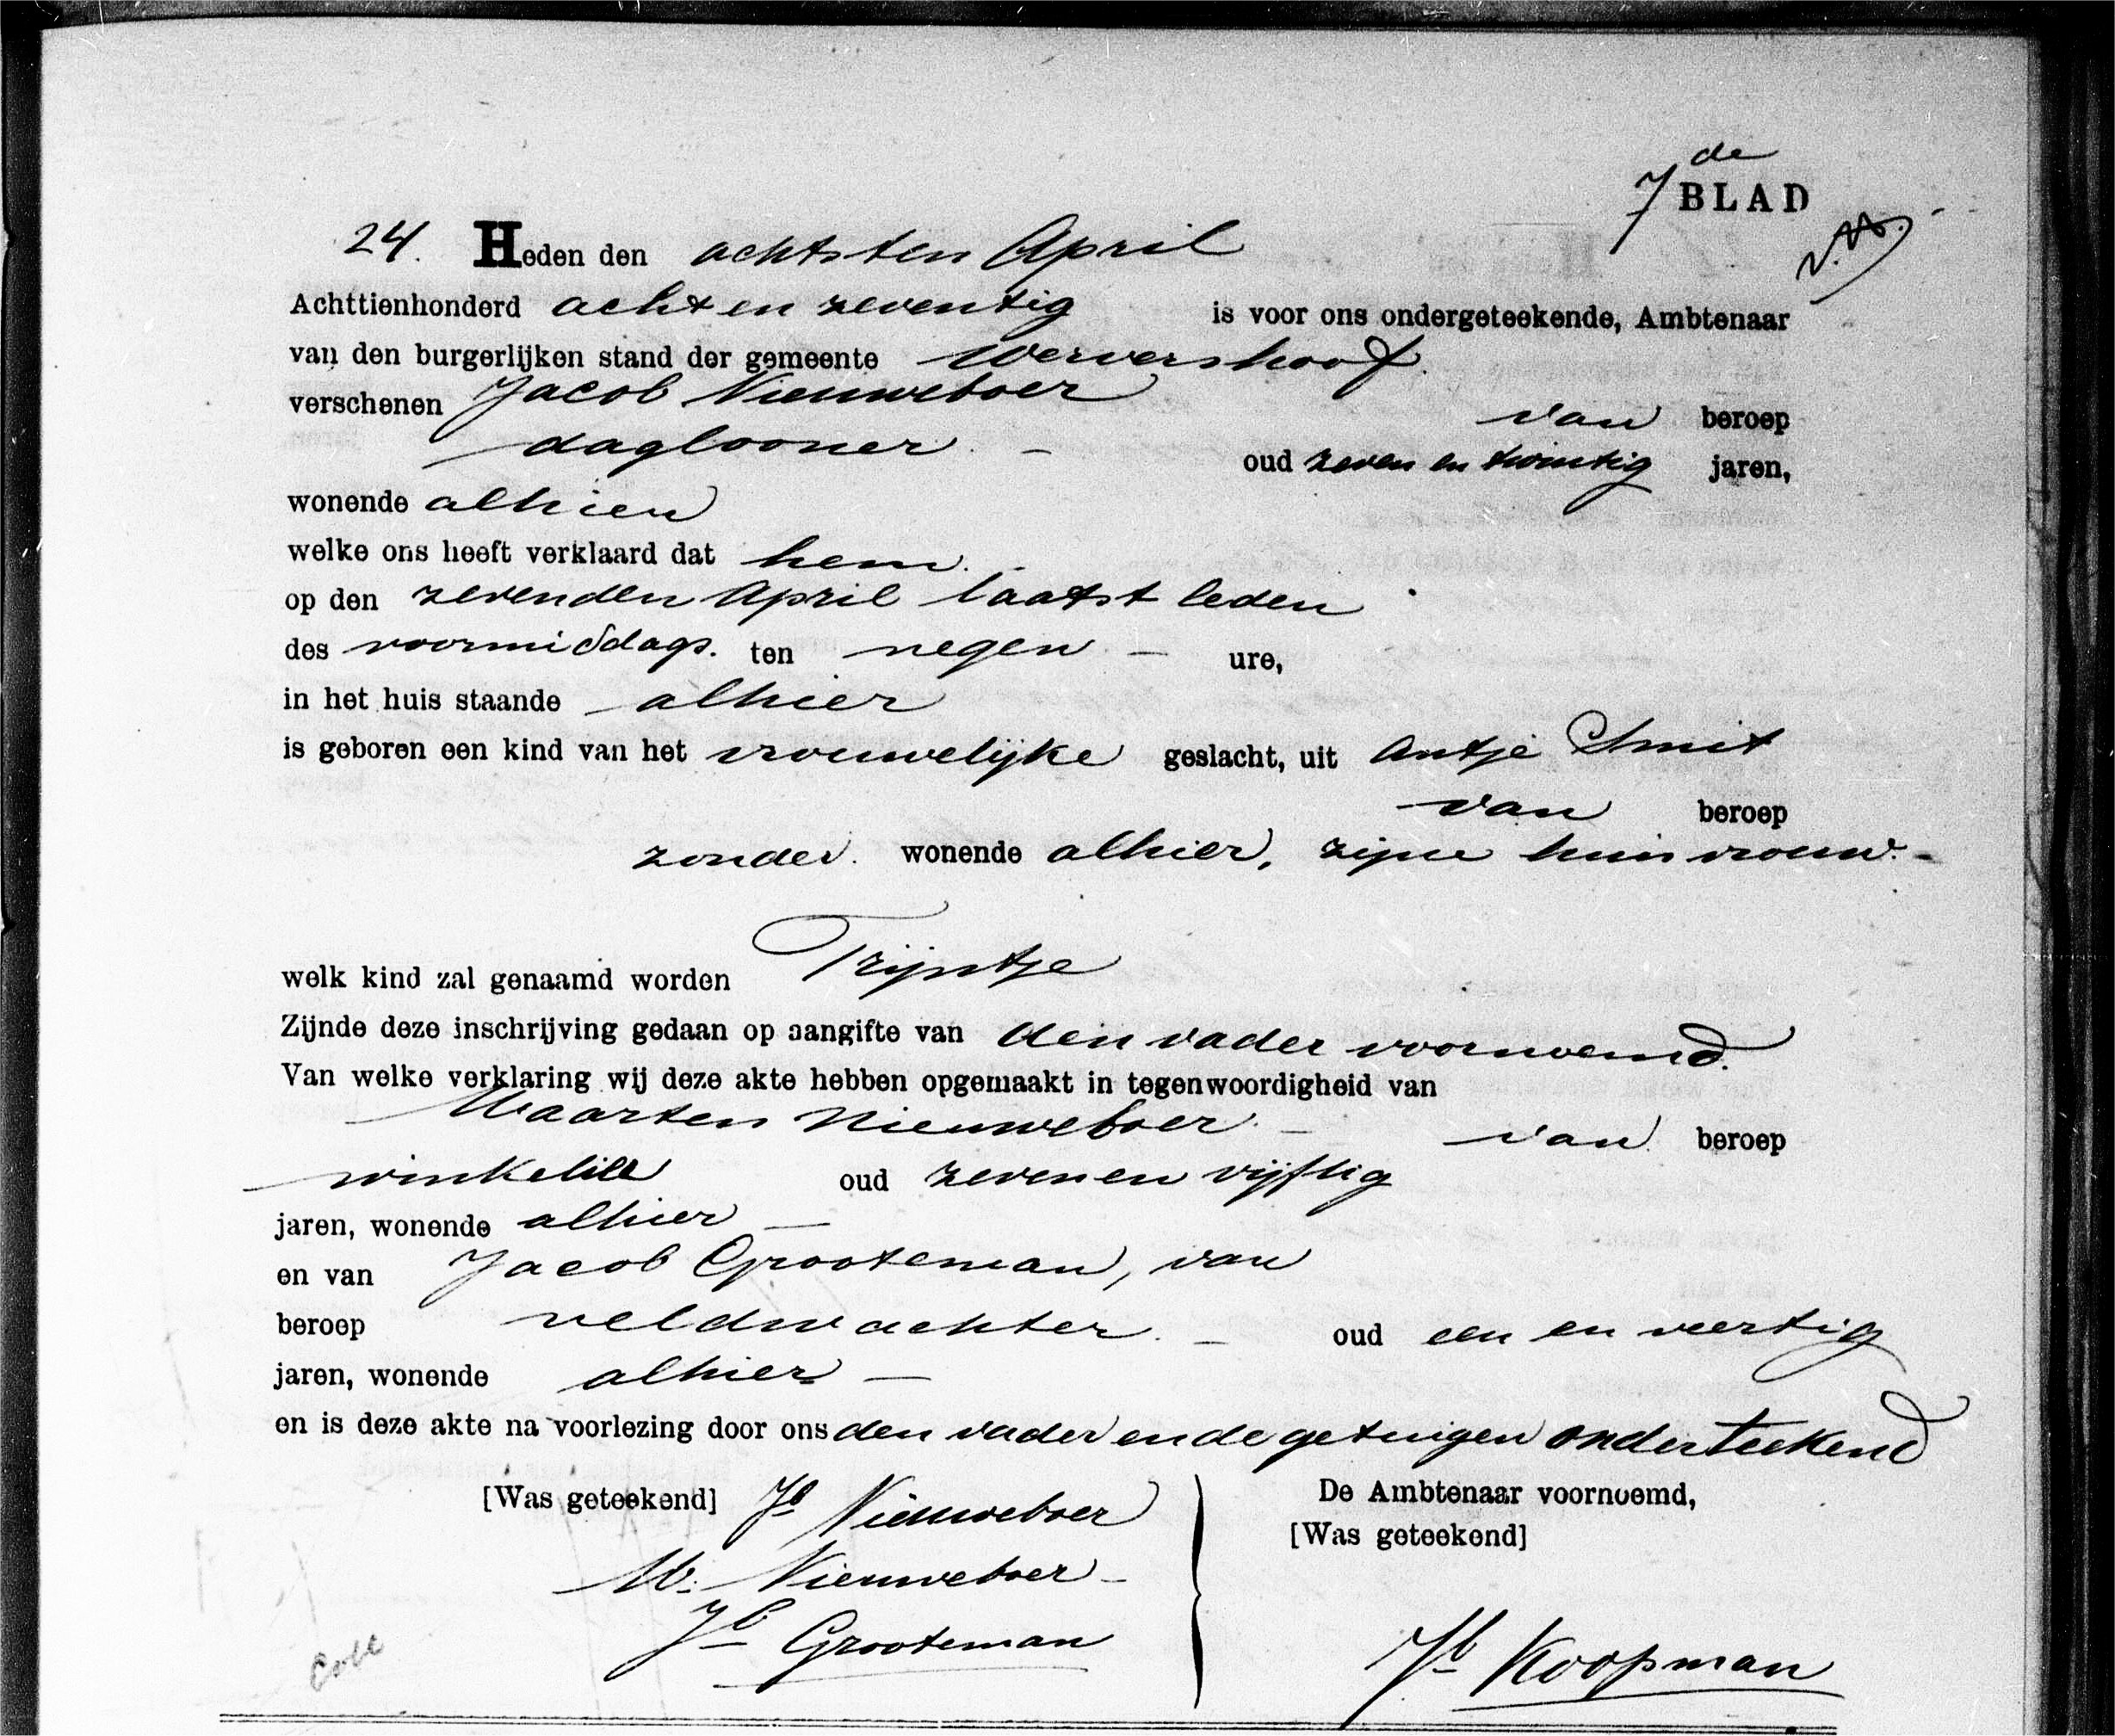 7 de BLAD
24. Heden den achtsten April
Achttienhonderd acht en zeventig is voor ons ondergeteekende, Ambtenaar
van den burgerlijken stand der gemeente Wervershoof.
verschenen Jacob Nieuweboer van beroep
daglooner. - oud zeven en twintig jaren,
wonende alhier
welke ons heeft verklaard dat hem.
op den zevenden April laatst leden
des voormiddags. ten negen - ure,
in het huis staande alhier
is geboren een kind van het vrouwelijke geslacht, uit Antje Smit
van beroep
zonder. wonende alhier, zijne huisvrouw. -
welk kind zal genaamd worden Trijntje
Zijnde deze inschrijving gedaan op aangifte van den vader voornoemd.
Van welke verklaring wij deze akte hebben opgemaakt in tegenwoordigheid van
Maarten Nieuweboer. - van beroep
oud zeven en vijftig
jaren, wonende alhier -
en van Jacob Grooteman, van
beroep veldwachter. - oud een en veertig
jaren, wonende alhier -
en is deze akte na voorlezing door ons den vader en de getuigen onderteekend
[Was geteekend] Jb Nieuweboer
M. Nieuweboer -
Jb Grooteman
De Ambtenaar voornoemd,
[Was geteekend]
Jb Koopman